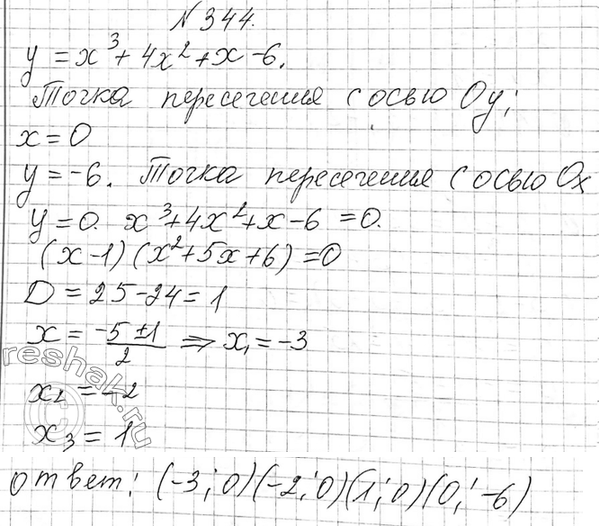 №344.
y = x³ + 4x² + x - 6.
Точка пересечения с осью Oy;
x = 0
y = -6. Точка пересечения с осью Ox
y = 0. x³ + 4x² + x - 6 = 0.
(x - 1)(x² + 5x + 6) = 0
D = 25 - 24 = 1
x = (-5 ± 1)/2 ⇒ x₁ = -3
x₂ = -2
reshak.ru
x₃ = 1
ответ: (-3; 0)(-2; 0)(1; 0)(0; -6)